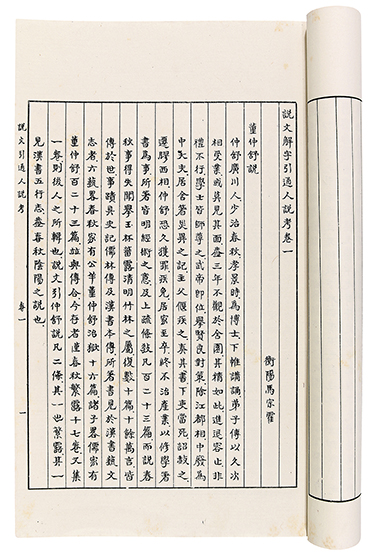 説文解字引通人説考卷一
衡陽馬宗霍
董仲舒説
仲舒廣川人少治春秋孝景時為博士下帷講誦弟子傳以久次
相受業或莫見其面蓋三年不觀於舍園其精如此進退容止非
禮不行學士皆師尊之武帝即位舉賢良對策除江都相中廢為
中大夫居舍著災異之記主父偃疾之奏其書下吏當死詔赦之
遷膠西相仲舒恐久獲罪疾免居家至卒終不治產業以修學著
書為事所著皆明經術之意及上疏條教凡百二十三篇而説春
秋事得失聞舉玉杯蕃露清明竹林之屬復數十篇十餘萬言皆
傳於世事蹟具史記儒林傳及漢書本傳所著書見於漢書藝文
志者六藝畧春秋家有公羊董仲舒治獄十六篇諸子畧儒家有
董仲舒百二十三篇竝與傳合今存者僅春秋繁露十七卷又集
一卷則後人之所輯也説文引仲舒説凡二條其一也繁露其一
見漢書五行志蓋春秋陰陽之説也
説文引通人説考 卷一 一